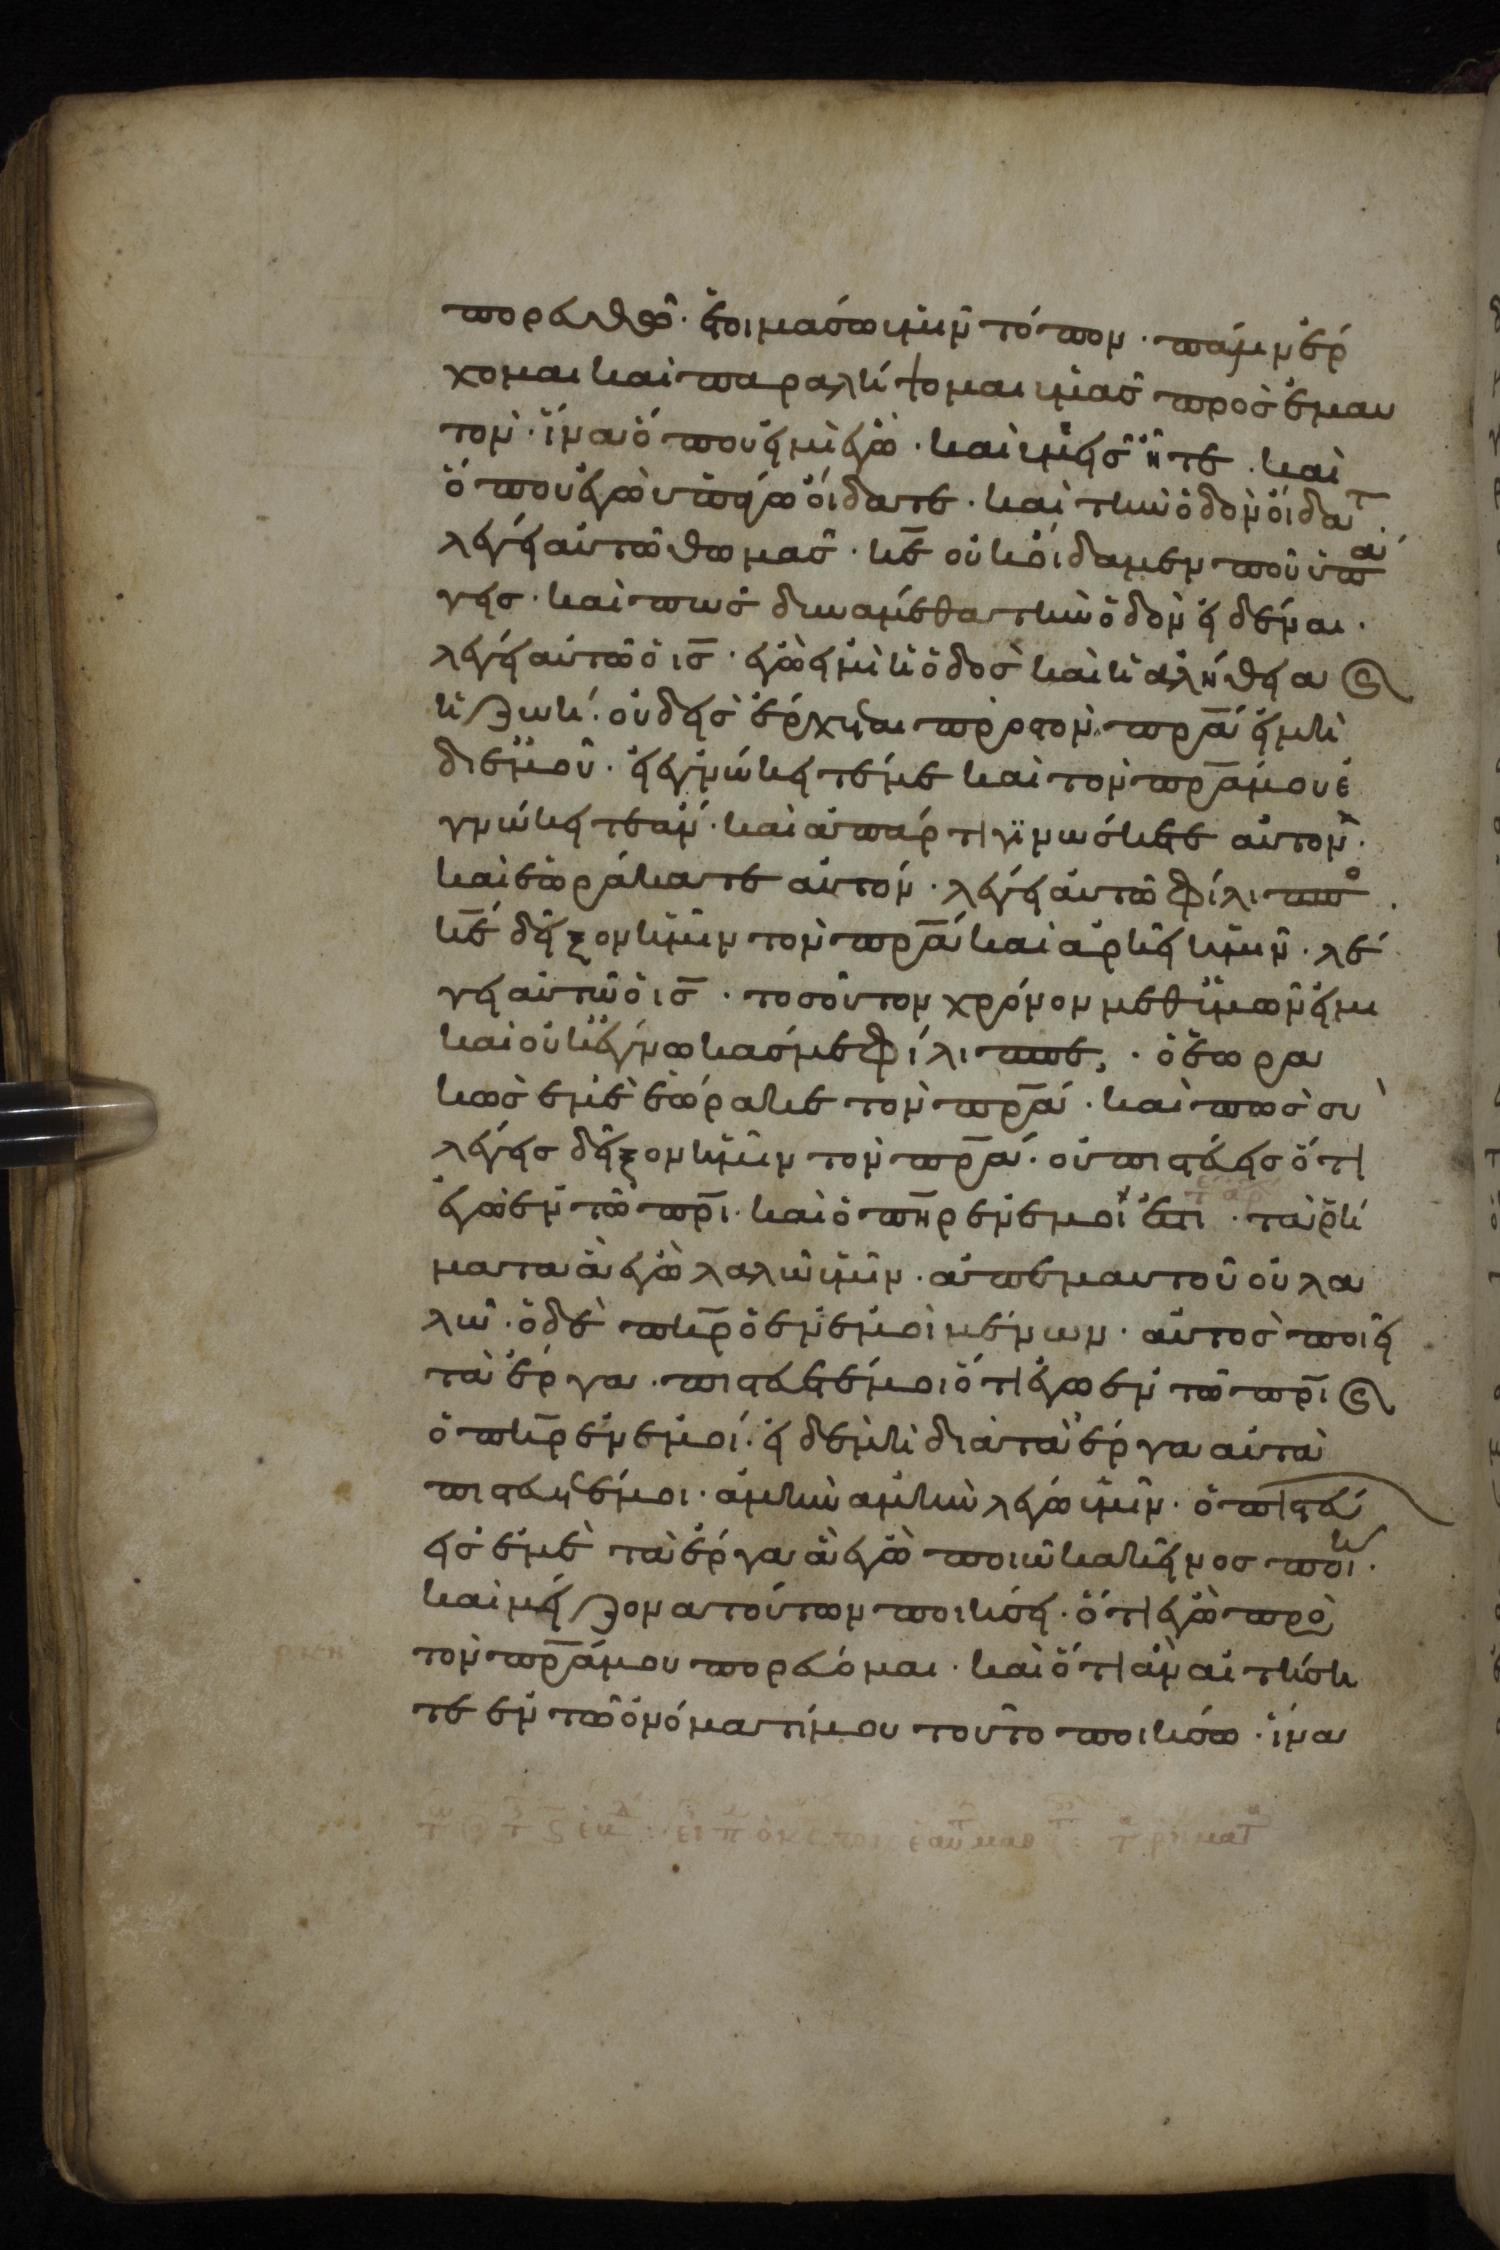 πορευθῶ· ἑτοιμάσω ὑμῖν τόπον· πάλιν ἔρ
χομαι καὶ παραλήψομαι ὑμᾶς πρὸς ἐμαυ
τὸν· ἵνα ὅπου εἰμὶ ἐγὼ· καὶ ὑμεῖς ἦτε· καὶ
ὅπου ἐγὼ ὑπάγω οἴδατε· καὶ τὴν ὁδὸν οἴδατ·
λέγει αὐτῶ θωμᾶς· κ̅ε̅ οὐκ οἴδαμεν ποῦ ὑπά
γεις· καὶ πῶς δυνάμεθα τὴν ὁδὸν εἰδέναι·
λέγει αὐτῶ ὁ ι̅ς̅· ἐγὼ εἰμὶ ἡ ὁδὸς καὶ ἡ ἀλήθεια ϗ
ἡ ζωή· οὐδεὶς ἔρχεται πρὸς τὸν π̅ρ̅α̅ εἰ μὴ
δι' ἐμοῦ· εἰ ἐγνώκειτέ με καὶ τὸν π̅ρ̅α̅ μου ἐ
γνώκειτε ἄν· καὶ ἀπάρτι γινώσκετε αὐτὸν·
καὶ ἑωράκατε αὐτόν· λέγει αὐτῶ φίλιππο·
κ̅ε̅ δεῖξον ἡμῖν τὸν π̅ρ̅α̅ καὶ ἀρκεῖ ἡμῖν· λέ
γει αὐτῶ ὁ ι̅ς̅· τοσοῦτον χρόνον μεθ' ὑμῶν εἰμι
καὶ οὐκ ἔγνωκάς με φίλιππε· ὁ ἑωρα
κὼς ἐμὲ ἑώρακε τὸν π̅ρ̅α̅· καὶ πῶς σὺ
λέγεις δεῖξον ἡμῖν τὸν π̅ρ̅α̅· οὐ πιστεύεις ὅτι
ἐγὼ ἐν τῶ π̅ρ̅ι̅· καὶ ὁ π̅η̅ρ̅ ἐν ἐμοί ἐστι· τὰ ῥή
ματα ἃ ἐγὼ λαλῶ ὑμῖν· ἀπ' ἐμαυτοῦ οὐ λα
λῶ· ὁ δὲ π̅η̅ρ̅ ὁ ἐν ἐμοὶ μένων· αὐτὸς ποιεῖ
τὰ ἔργα· πιστεύετέ μοι ὅτι ἐγὼ ἐν τῶ π̅ρ̅ι̅ ϗ
ὁ π̅η̅ρ̅ ἐν ἐμοί· εἰ δὲ μὴ διὰ τὰ ἔργα αὐτὰ
πιστεύετέ μοι· ἀμὴν ἀμὴν λέγω ὑμῖν· ὁ πιστεύ
εις ἐμὲ τὰ ἔργα ἃ ἐγὼ ποιῶ κακεῖνος ποιη·
καὶ μείζονα τούτων ποιήσει· ὅτι ἐγὼ πρὸ
τὸν π̅ρ̅α̅ μου πορεύομαι· καὶ ὅτι ἂν αἰτήση
τε ἐν τῶ ὀνόματί μου τοῦτο ποιήσω· ἵνα